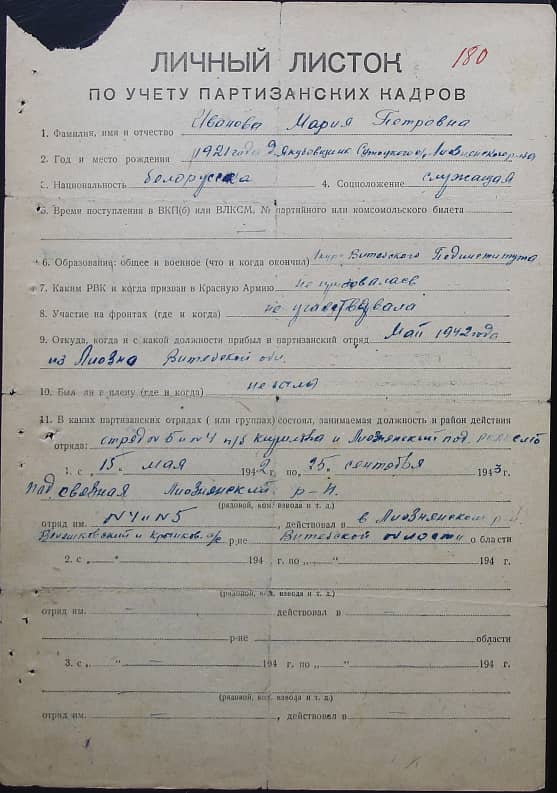 180
ЛИЧНЫЙ ЛИСТОК
ПО УЧЕТУ ПАРТИЗАНСКИХ КАДРОВ
1. Фамилия, имя и отчество Иванова Мария Петровна
2. Год и место рождения 1921 года д. Якубовщина
3. Национальность белорусска 4. Соцположение служащая
5. Время поступления в ВКП(б) или ВЛКСМ, № партийного или комсомольского билета —
6. Образование: общее и военное (что и когда окончил) Витебского Пединститута
7. Каким РВК и когда призван в Красную Армию не
8. Участие на фронтах (где и когда) не участвовала
9. Откуда, когда и с какой должности прибыл в партизанский отряд Май 1942 года
из Лиозна Витебской обл.
10. Был ли в плену (где и когда) не была
11. В каких партизанских отрядах ( или группах) состоял, занимаемая должность и район действия
отряда: отряд и Лиозненский под.
1. с „ 15. мая 1942 г. по „ 25. сентября 1943 г.
связная Лиозненский р-н.
(рядовой, ком. взвода и т. д.)
отряд им. №4 и №5, действовал в в Лиозненском
и р-не Витебской области области
2. с „ “ 194 г. по „ “ 194 г.
(рядовой, ком. взвода и т. д.)
отряд им. — действовал в —
р-не — области
3. с „ “ — 194 г. по „ “ — 194 г.
(рядовой, ком. взвода и т. д.)
отряд им. —, действовал в —